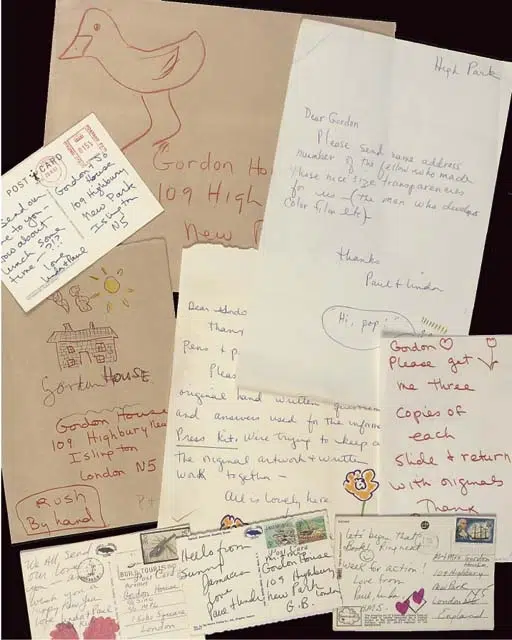 Gordon Ho
109 High
New P
High Park
Dear Gordon
Please send name address
number of the fellow who made
these nice size transparencies
for us - (the man who develops
color film etc)
thanks
Paul + Linda
Hi, pop!
POST CARD
Send our
love to you
How about
lunch some
time -?!?
love
Linda + Paul
Gordon
House
109 Highbury
New Park
Islington
N5
Gordon HOUSE
Gordon House
109 Highbury New
Islington
London N5
RUSH
By hand
Dear
than
Pens + p
Pleas
original hand written
and answers used for the
Press Kits. We're trying to keep a
the original artwork + written
work together -
All is lovely here
Gordon
Please get
me three
copies of
each
slide + return
with originals
Thank
We All Send
Our love
you
Gordon House
London
Hello from
Sunny
Jamaica
Love
Paul + Linda
Gordon House
109 Highbury
New Park
London
G.B.
Let's begin that
week for action!
Love from
Paul, Linda
Gordon
House
109 Highbury
New Park
London N5
England